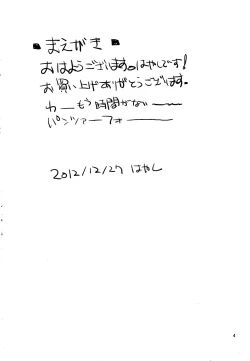 ■まえがき■
おはようございます。はやしです!
お買い上げありがとうございます。
わーもう時間がない――
パンツァーフォー――
2012/12/27 はやし
4